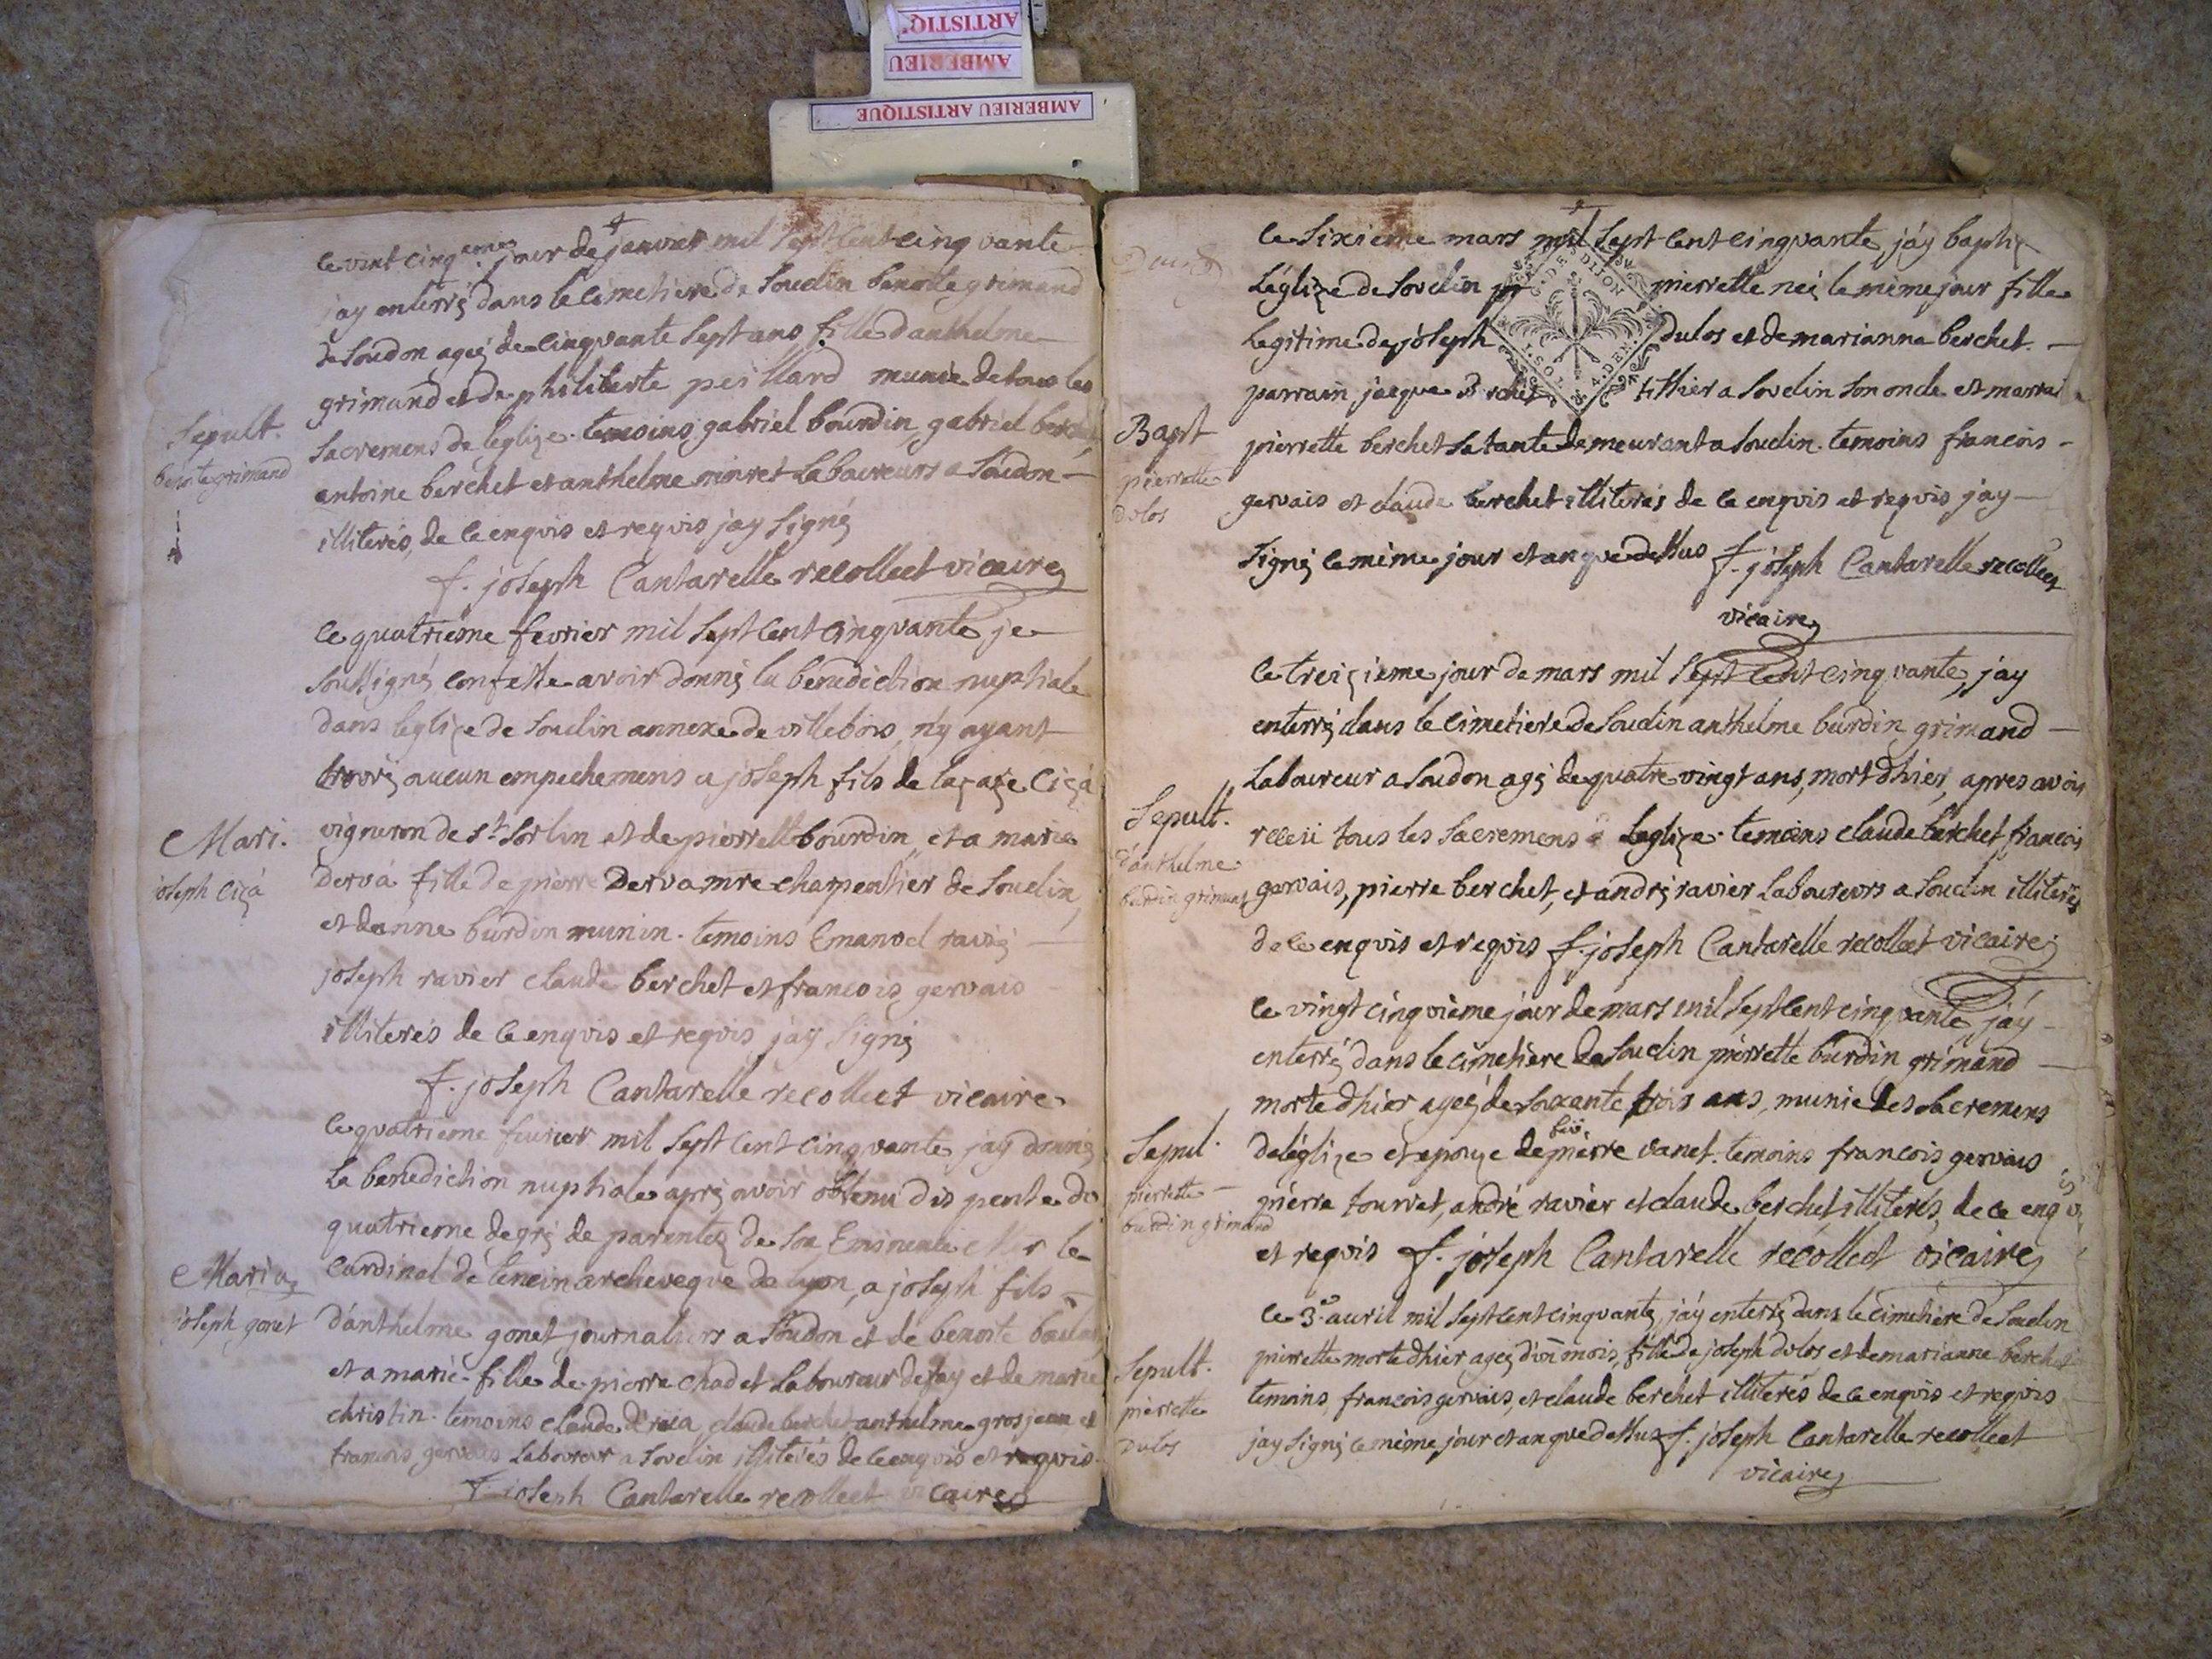 ARTISTIQ
AMBERIEU
AMBERIEU ARTISTIQUE
le vint cinq emes jour de janvier mil sept cent cinqvante
jay enterré dans le cimetiere de Soudin benoite grimand
de Soudon ageé de cinqvante sept ans fille danthelme
grimand et de philiberte peillard munie de tous les
Sepult.
benoite grimand
sacremens de leglize. temoins gabriel bourdin, gabriel berchet
antoine berchet et anthelme minret laboureurs a Soudon
illiterés, de ce enqvis et reqvis jay signé
f. joseph Cantarelle recollect vicaire
le quatrieme fevrier mil sept cent cinqvante je
soussigné confesse avoir donné la benediction nuptiale
dans leglize de Soudin annexe de villebois, ny ayant
trouvé aucun empechemens a joseph fils de
Mari.
joseph Ciça
vigneron de st Sorlin et de pierrette bourdin, et a marie
derva fille de pierre Derva mre charpentier de Soudin,
et danne burdin munin. temoins Emanvel ravié
joseph ravier claude berchet et francois gervais
illiterés de ce enqvis et reqvis jay signé
f. joseph Cantarelle recollect vicaire
le qvatrieme fevrier mil sept cent cinqvante jay donné
la benediction nuptiale apré avoir obtenu dispense du
quatrieme degré de parentez de son Eminence Mgr le
Cardinal de tencin archeveqve de lyon, a joseph fils
Maria
joseph gonet
d'anthelme gonet journaliers a Soudon et de benoite
et a marie fille de pierre chadet laboureur de fay et de marie
christin. temoins claude derva, claude berchet anthelme grosjean et
francois gervais laboureur a Soudin illiterés de ce enqvis et reqvis.
f. joseph Cantarelle recollect vicaire
le sixieme mars mil sept cent cinqvante, jay baptizé
G. DE DIJON
I. SOL. 4. DEN.
Léglize de Soudin pierrette neé le meme jour fille
legitime de joseph dulos et de marianne berchet.
parrain jacque Berchet a Soudin son oncle et marraine
Bapt
pierrette
dulos
pierrette berchet sa tante demeurant a Soudin. temoins francois
gervais et claude berchet illiterés de ce enqvis et reqvis jay
signé le même jour et an qve dessus f. joseph Cantarelle recollect
vicaire
le treizieme jour de mars mil sept cent cinqvante, jay
enterré dans le cimetiere de Soudin anthelme burdin grimand
Laboureur a Soudon agé de quatre vingt ans, mort dhier, apres avoir
Sepult.
d'anthelme
burdin grimand
receu tous les sacremens leglize. temoins claude berchet, francois
gervais, pierre berchet, et andré ravier laboureurs a Soudin illiterés
de ce enqvis et reqvis f. joseph Cantarelle recollect vicaire
le vingt cinqvieme jour de mars mil sept cent cinqvante jay
enterré dans le cimetiere de Soudin pierrette burdin grimand
morte dhier ageé de soixante trois ans, munie des sacremens
Sepul.
pierrette
burdin grimand
de léglize et epouze de feu pierre vanet. temoins francois gervais
pierre tourret, andré ravier et claude berchet, illiterés, de ce enqvis
et reqvis f. joseph Cantarelle recollect vicaire
le 3e. avril mil sept cent cinqvante, jay enterré dans le cimetiere de Soudin
Sepult.
pierrette
Dulos
pierrette morte dhier ageé d'un mois, fille de joseph dulos et de marianne berchet
temoins, francois gervais, et claude berchet illiterés de ce enqvis et reqvis
jay signé le même jour et an qve dessus f. joseph Cantarelle recollect
vicaire